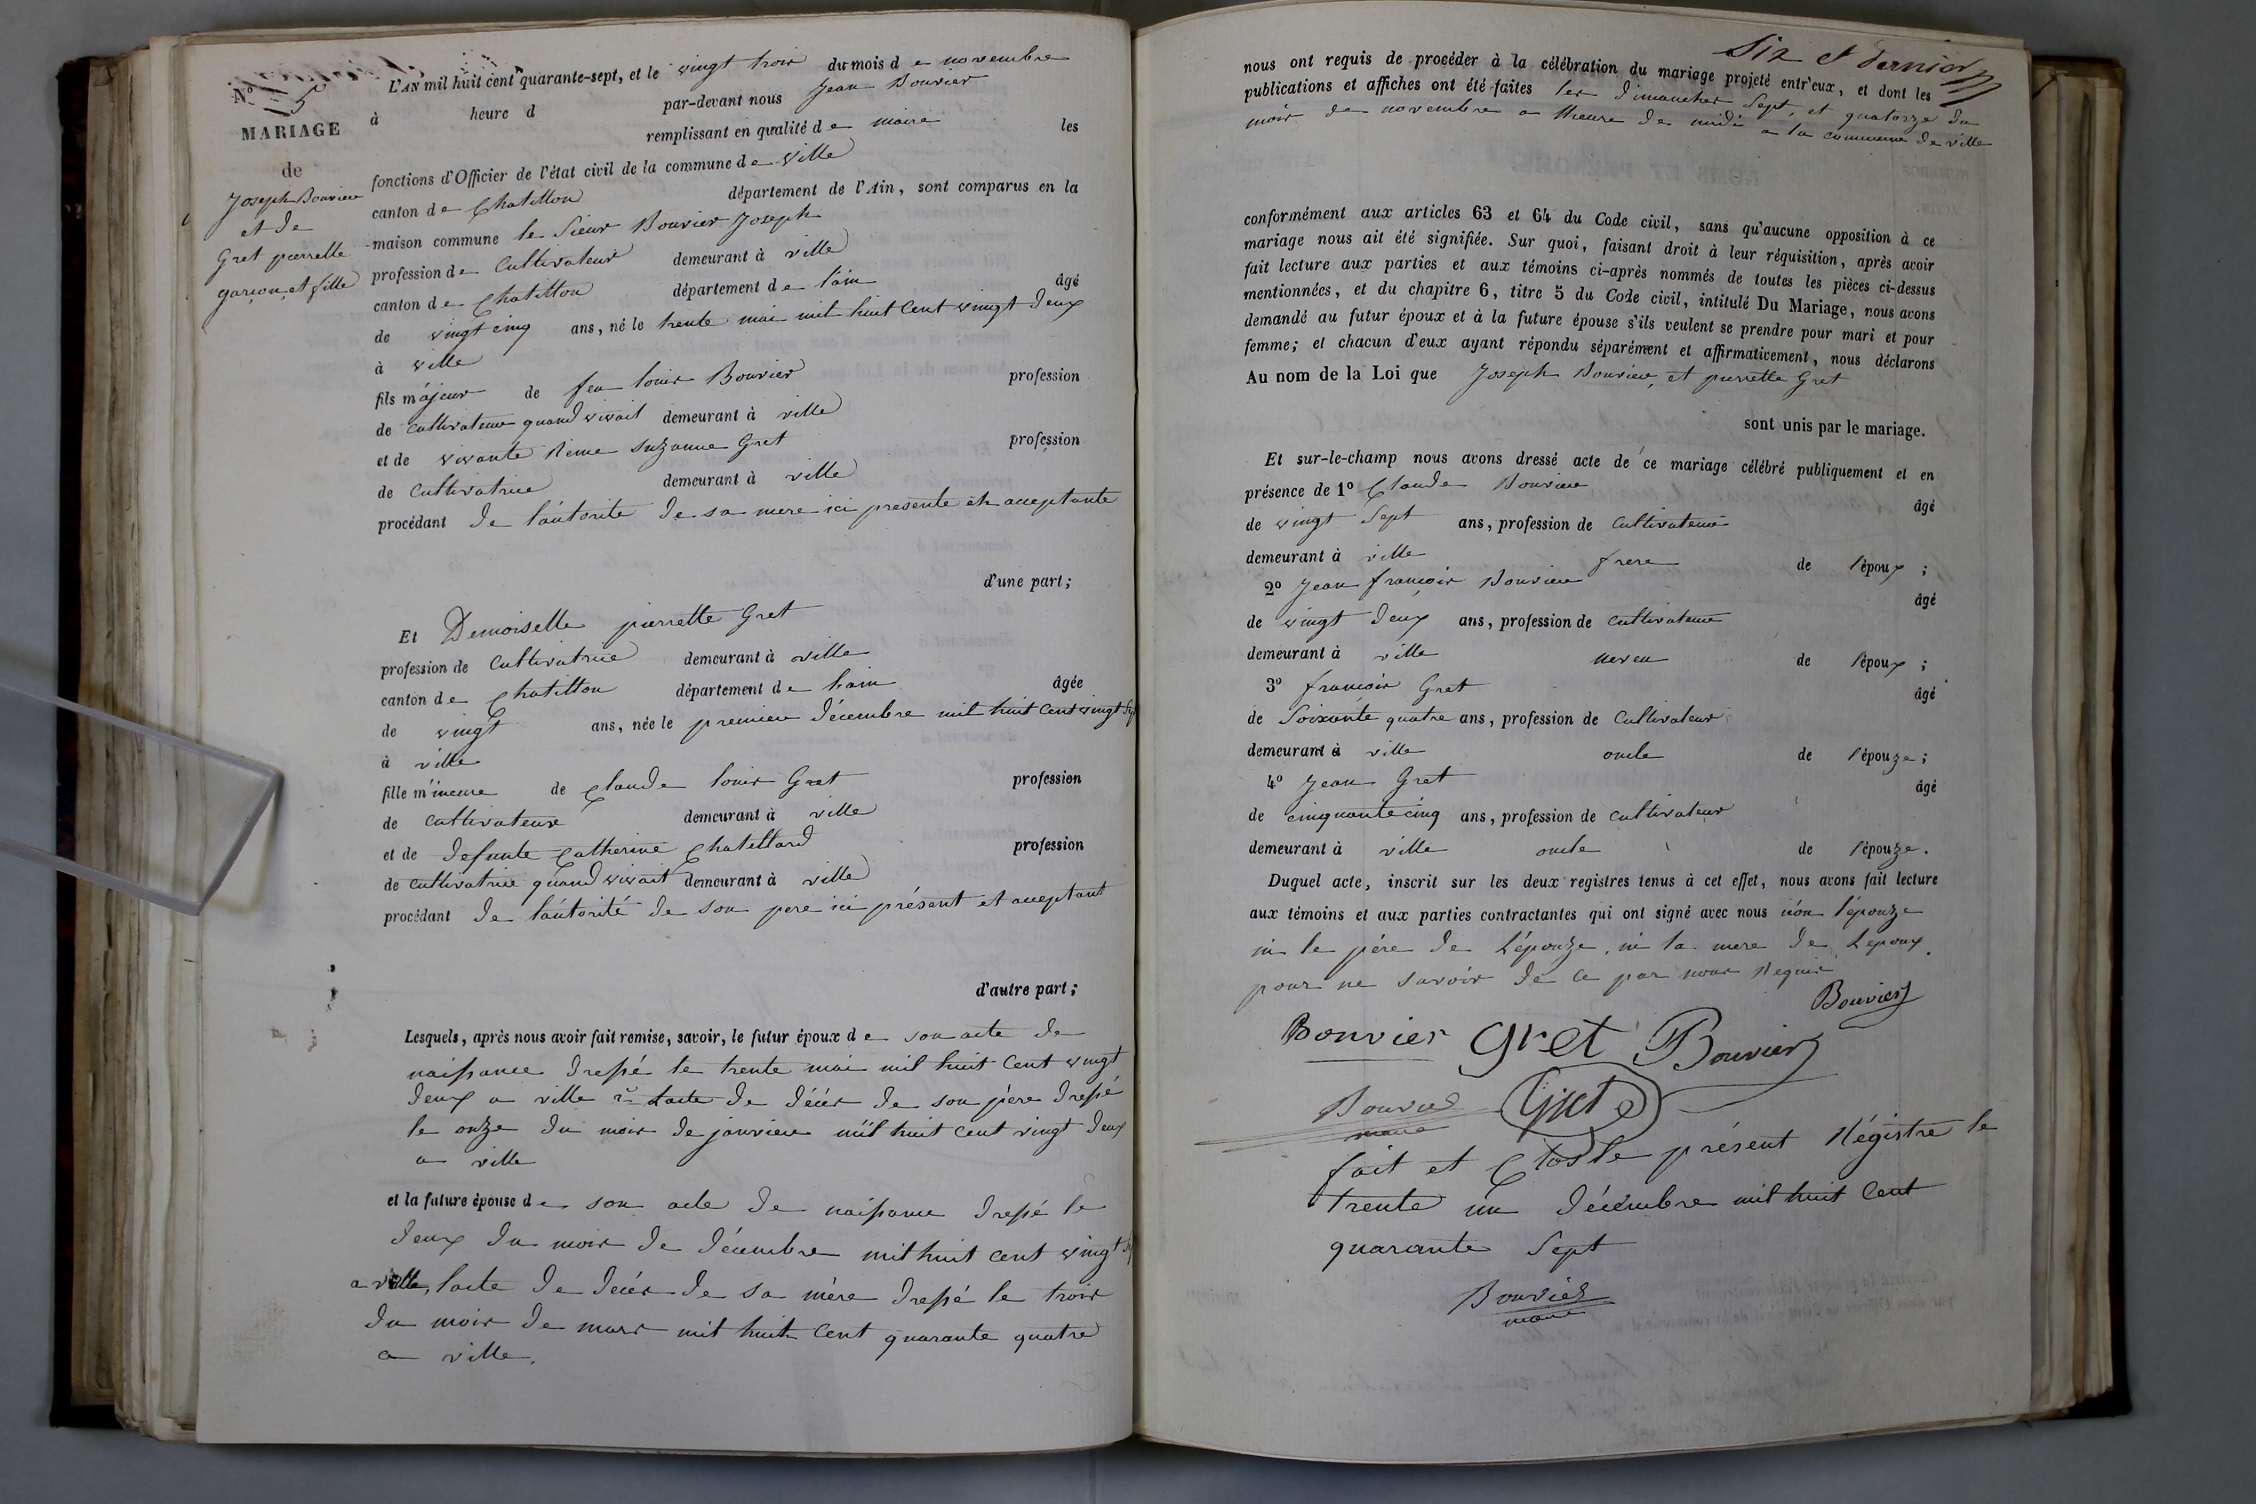 N° 5
MARIAGE
de
Joseph Bouvier
et de
Gret pierrette
garçon et fille
L'AN mil huit cent quarante-sept, et le vingt trois du mois de novembre
à heure d par-devant nous Jean Bouvier
remplissant en qualité de maire les
fonctions d'Officier de l'état civil de la commune de ville
canton de Chatillon département de l'Ain, sont comparus en la
maison commune le Sieur Bouvier Joseph
profession de Cultivateur demeurant à ville
canton de Chatillon département de l'ain âgé
de vingt cinq ans, né le trente mai mil huit Cent vingt deux
à ville
fils májeur de feu louis Bouvier profession
de cultivateur quand vivait demeurant à ville
et de vivante Suzanne Gret profession
de Cultivatrice demeurant à ville
procédant de l'autorité de sa mere ici presente et acceptante
d'une part;
Et Demoiselle pierrette Gret
profession de Cultivatrice demeurant à ville
canton de Chatillon département de l'ain âgée
de vingt ans, née le premier décembre mil huit Cent vingt Sept
à ville
fille mineure de Claude louis Gret profession
de cultivateur demeurant à ville
et de defunte Catherine Chatillard profession
de cultivatrice quand vivait demeurant à ville
procédant de l'áutorité de son pere ici présent et acceptant
d'autre part;
Lesquels, après nous avoir fait remise, savoir, le futur époux de son acte de
naissance dressé le trente mai mil huit Cent vingt
deux a ville 2° lacte de décés de son père dressé
le onze du mois de janvier mil huit cent vingt deux
a ville
et la future épouse de son acte de naissance dressé le
deux du mois de décembre mil huit cent vingt Sept
a ville, lacte de decés de sa mère dressé le trois
du mois de mars mil huit Cent quarante quatre
a ville.
Six et dernier
nous ont requis de procéder à la célébration du mariage projeté entr'eux, et dont les
publications et affiches ont été faites les dimanches Sept, et quatorze du
mois de novembre a lheure de midi a la commune de ville
conformément aux articles 63 et 64 du Code civil, sans qu'aucune opposition à ce
mariage nous ait été signifiée. Sur quoi, faisant droit à leur réquisition, après avoir
fait lecture aux parties et aux témoins ci-après nommés de toutes les pièces ci-dessus
mentionnées, et du chapitre 6, titre 5 du Code civil, intitulé Du Mariage, nous avons
demandé au futur époux et à la future épouse s'ils veulent se prendre pour mari et pour
femme; et chacun d'eux ayant répondu séparément et affirmativement, nous déclarons
Au nom de la Loi que Joseph Bouvier, et pierrette Gret
sont unis par le mariage.
Et sur-le-champ nous avons dressé acte de ce mariage célébré publiquement et en
présence de 1° Claude Bouvier âgé
de vingt Sept ans, profession de Cultivateur
demeurant à ville frere de l'époux ;
2° Jean françois Bouvier âgé
de vingt deux ans, profession de cultivateur
demeurant à ville neveu de l'époux ;
3° françois Gret âgé
de Soixante quatre ans, profession de Cultivateur
demeurant à ville oncle de l'épouze ;
4° Jean Gret âgé
de cinquante cinq ans, profession de cultivateur
demeurant à ville oncle de l'épouze.
Duquel acte, inscrit sur les deux registres tenus à cet effet, nous avons fait lecture
aux témoins et aux parties contractantes qui ont signé avec nous nón l'épouze
ni le père de l'épouze, ni la mere de Lepoux
pour ne savoir de ce par nous Requis
Bouvier
Bonvier gret Bouvier
Bouvier Gret
maire
fait et Clos le présent Régistre le
trente un décembre mil huit Cent
quarante Sept
Bouvier
maire